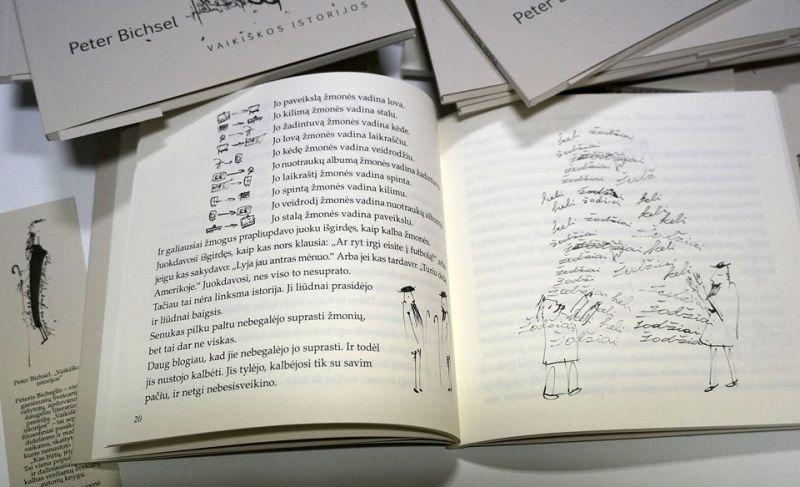 Peter Bichsel
VAIKIŠKOS ISTORIJOS
Peter Bichsel
Jo paveikslą žmonės vadina lova.
Jo kilimą žmonės vadina stalu.
Jo žadintuvą žmonės vadina kėde.
Jo lovą žmonės vadina laikraščiu.
Jo kėdę žmonės vadina veidrodžiu.
Jo nuotraukų albumą žmonės vadina žadintuvu.
Jo laikraštį žmonės vadina spinta.
Jo spintą žmonės vadina kilimu.
Jo veidrodį žmonės vadina nuotraukų albumu.
Jo stalą žmonės vadina paveikslu.
Ir galiausiai žmogus prapliupdavo juoku išgirdęs, kaip kalba žmonės.
Juokdavosi išgirdęs, kaip kas nors klausia: „Ar ryt irgi eisite į futbolą?"
jeigu kas sakydavo: „Lyja jau antras mėnuo." Arba jei kas tardavo: „Turiu dėdę
Amerikoje." Juokdavosi, nes viso to nesuprato.
Tačiau tai nėra linksma istorija. Ji liūdnai prasidėjo
ir liūdnai baigsis.
Senukas pilku paltu nebegalėjo suprasti žmonių,
bet tai dar ne viskas.
Daug blogiau, kad jie nebegalėjo jo suprasti. Ir todėl
jis nustojo kalbėti. Jis tylėjo, kalbėjosi tik su savim
pačiu, ir netgi nebesisveikino.
20
keli žodžiai
žodžiai
keli žodžiai keli
keli žodžiai keli
žodžiai keli
žodžiai
žodžiai keli
žodžiai
žodžiai žodžiai
Peter Bichsel. „Vaikiškos
istorijos"